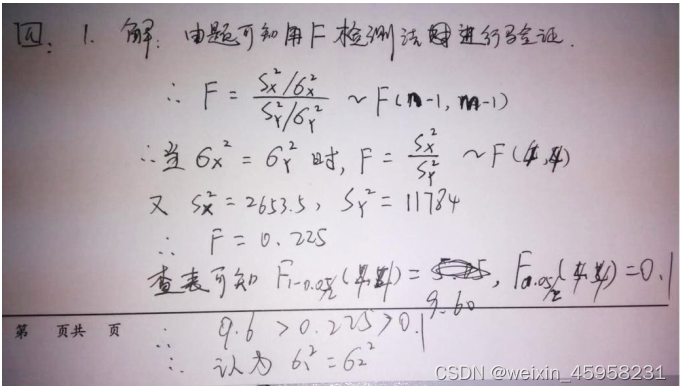 四. 1. 解: 由题可知用F检测法进行验证.
∴ F = (Sx²/σx²)/(SY²/σY²) ~ F(n-1, m-1)
∴当 σx² = σY² 时, F = Sx²/SY² ~ F(4,4)
又 Sx² = 2653.5, SY² = 11784
∴ F = 0.225
查表可知 F1-0.05/2(4,4) = 9.60, F0.05/2(4,4) = 0.1
第 页共 页
∴ 9.6 > 0.225 > 0.1
∴ 认为 σ1² = σ2²
CSDN @weixin_45958231